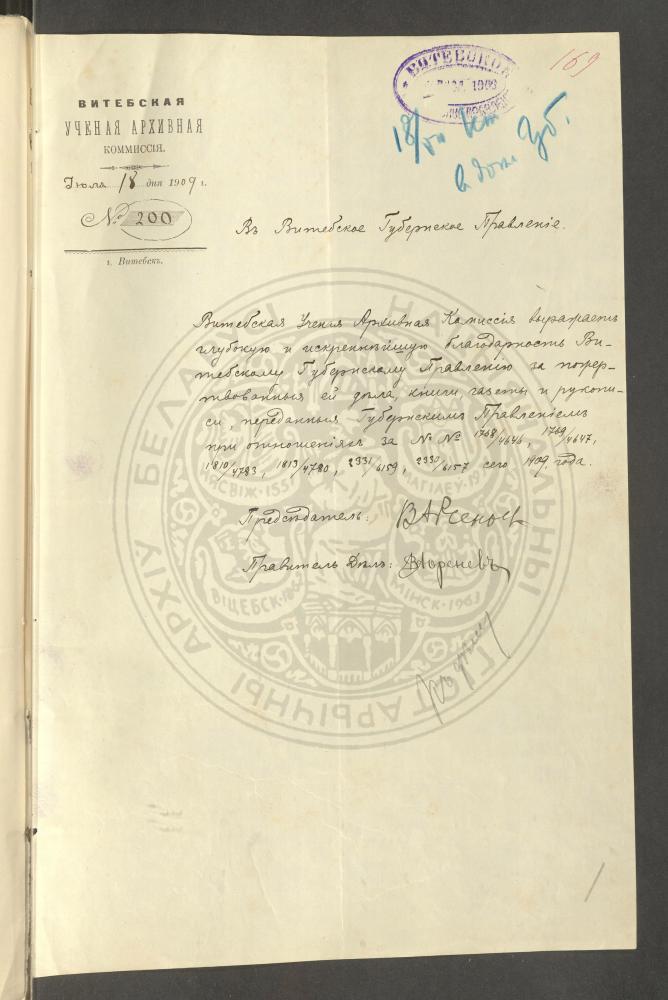 ВИТЕБСКАЯ
УЧЕНАЯ АРХИВНАЯ
КОММИССІЯ.
Іюля 18 дня 1909 г.
№ 200
г. Витебскъ.
ВИТЕБСКО
169
18/VII
Въ Витебское Губернское Правленіе.
Витебская Ученая Архивная Комиссія выражаетъ
глубокую и искреннѣйшую благодарность Ви-
тебскому Губернскому Правленію за пожер-
твованныя ей дѣла, книги, газеты и рукопи-
си, переданныя Губернскимъ Правленіемъ
при отношеніяхъ за №№ 1768/4646, 1769/4647,
1810/4783, 1813/4780, 2331/6159, 2330/6157 сего 1909 года.
Предсѣдатель: ВАрсеньевъ
Правитель Дѣлъ:
НАЦЫЯНАЛЬНЫ ГІСТАРЫЧНЫ АРХІЎ БЕЛАРУСІ
НЯСВІЖ·155
МАГІЛЁЎ·19
ВІЦЕБСК·186
МІНСК·1963